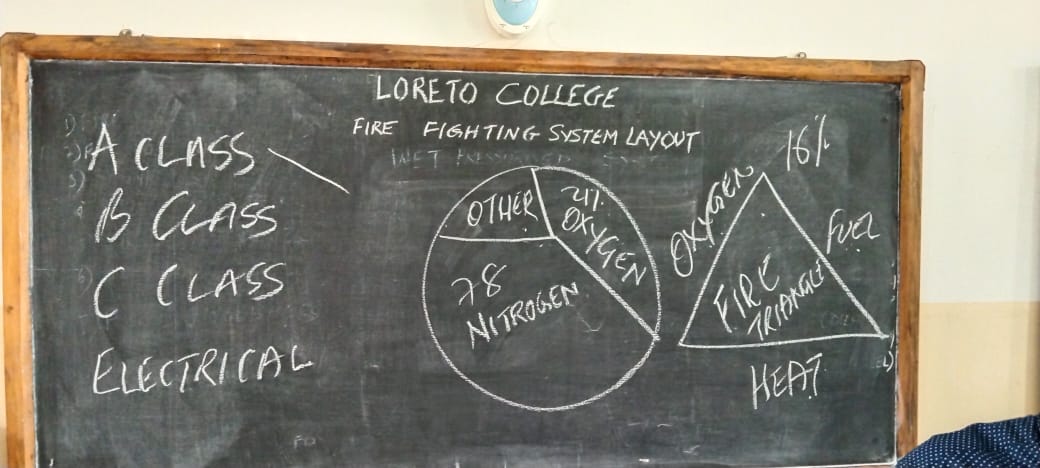 LORETO COLLEGE
FIRE FIGHTING SYSTEM LAYOUT
A CLASS
B CLASS
C CLASS
ELECTRICAL
OTHER
21%
OXYGEN
78
NITROGEN
16%
OXYGEN
FUEL
FIRE
TRIANGLE
HEAT